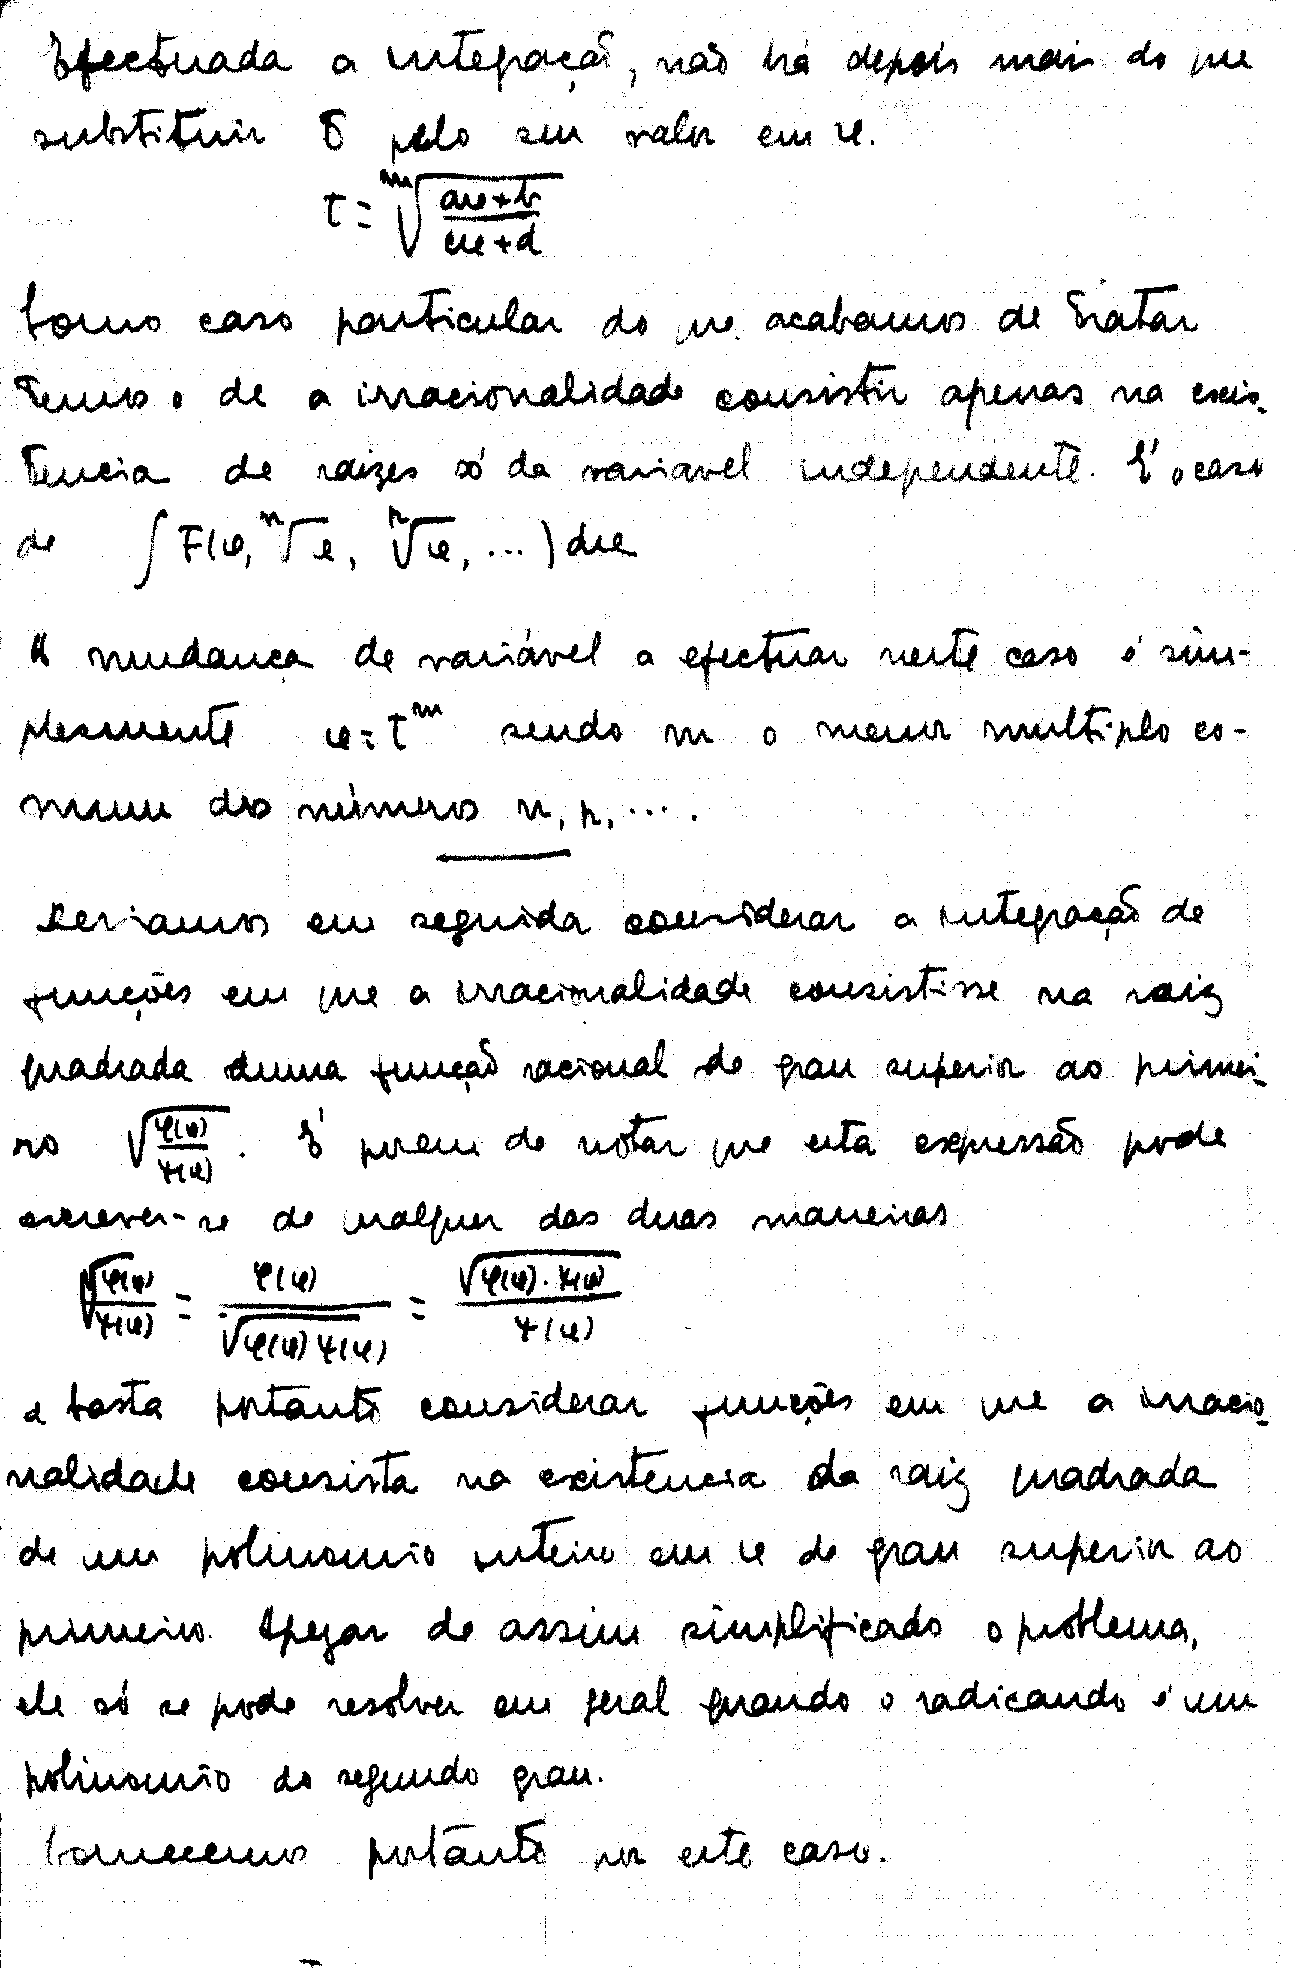 Efectuada a integração, não há depois mais do que
substituir t pelo seu valor em x.
t = \sqrt[m]{\frac{ax+b}{cx+d}}
Como caso particular do que acabamos de tratar
temos o de a irracionalidade consistir apenas na exis-
tencia de raizes só da variavel independente. É o caso
de ∫ F(x, \sqrt[n]{x}, \sqrt[p]{x}, ...) dx
A mudança de variável a efectuar neste caso é sim-
plesmente x = t^m sendo m o menor multiplo co-
mum dos números n, p, ....
Deviamos em seguida considerar a integração de
funções em que a irracionalidade consistisse na raiz
quadrada duma função racional de grau superior ao primei-
ro \sqrt{\frac{φ(x)}{ψ(x)}}. É porem de notar que esta expressão pode
escrever-se de qualquer das duas maneiras
\sqrt{\frac{φ(x)}{ψ(x)}} = \frac{φ(x)}{\sqrt{φ(x) ψ(x)}} = \frac{\sqrt{φ(x) . ψ(x)}}{ψ(x)}
e basta portanto considerar funções em que a irracio-
nalidade consista na existencia da raiz quadrada
de um polinomio inteiro em x de grau superior ao
primeiro. Apezar de assim simplificado o problema,
ele só se pode resolver em geral quando o radicando é um
polinomio do segundo grau.
Comecemos portanto por este caso.